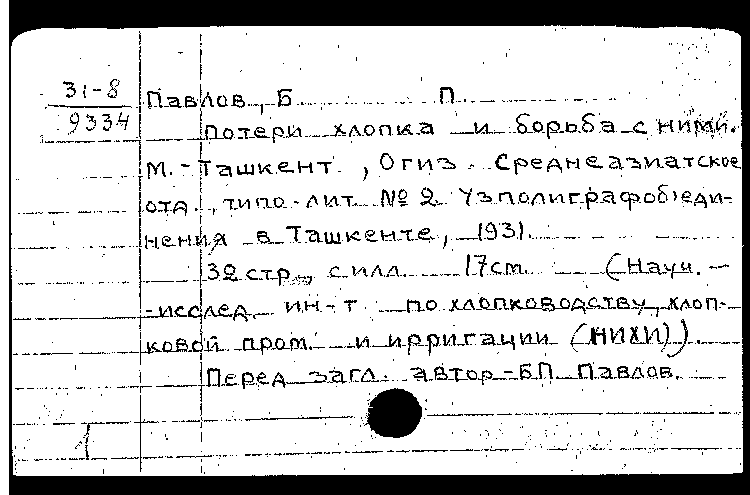 31-8
9334
Павлов, Б П.
Потери хлопка и борьба с ними.
М.-Ташкент, Огиз. Среднеазиатское
отд., типо-лит. № 2 Узполиграфоб'еди-
нения в Ташкенте, 1931.
32 стр., с илл. 17см. (Науч.-
-исслед. ин-т по хлопководству, хлоп-
ковой пром. и ирригации (НИХИ)).
Перед загл. автор-БП Павлов.
1